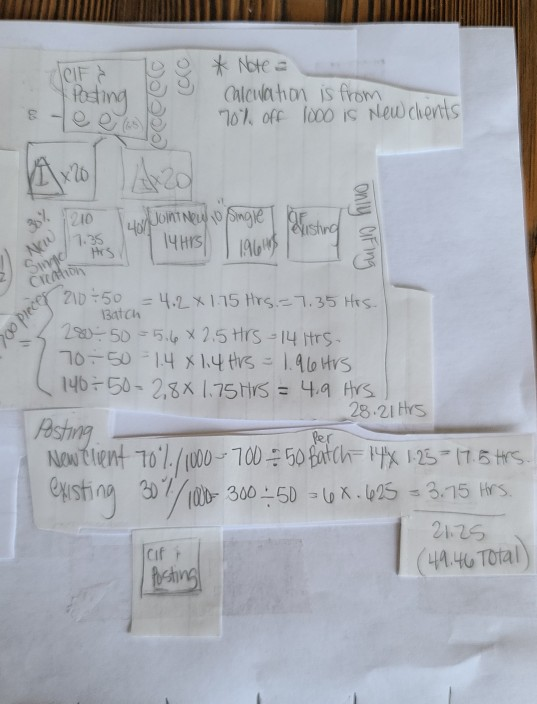 CIF &
Posting
8 -
* Note =
Calculation is from
70% off 1000 is New clients
x20
x20
30%
New
Single
Creation
210
7.35
Hrs
40%
Joint New
14 HRS
10%
Single
1.96 HRS
CIF
existing
only CIF ing
700 pieces =
210 ÷ 50 = 4.2 x 1.75 Hrs. = 7.35 Hrs.
Batch
280 ÷ 50 = 5.6 x 2.5 HRS = 14 Hrs.
70 ÷ 50 = 1.4 x 1.4 Hrs = 1.96 HRS
140 ÷ 50 = 2.8 x 1.75 HRS = 4.9 Hrs
28.21 Hrs
Posting
New Client 70% / 1000 = 700 ÷ 50 Per Batch = 14 x 1.25 = 17.5 Hrs.
existing 30% / 1000 = 300 ÷ 50 = 6 x .625 = 3.75 Hrs.
21.25
(49.46 Total)
CIF &
Posting